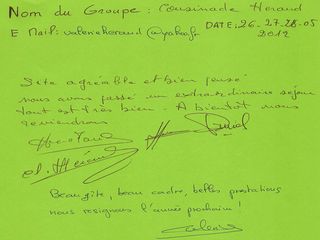 Nom du Groupe : Cousinade Heraud
E Mail: valerieheraud@yahoo.fr DATE: 26-27-28-05
2012
Site agréable et bien pensé
nous avons passé un extraordinaire séjour
tout est très bien - A bientôt nous
reviendrons
Beau gîte, beau cadre, belles prestations
nous resignons l'année prochaine!